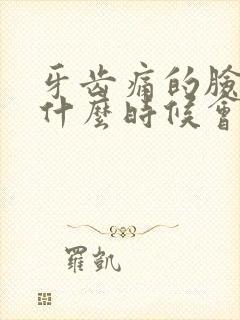 牙齒痛的臉
什麼時候會
羅凱